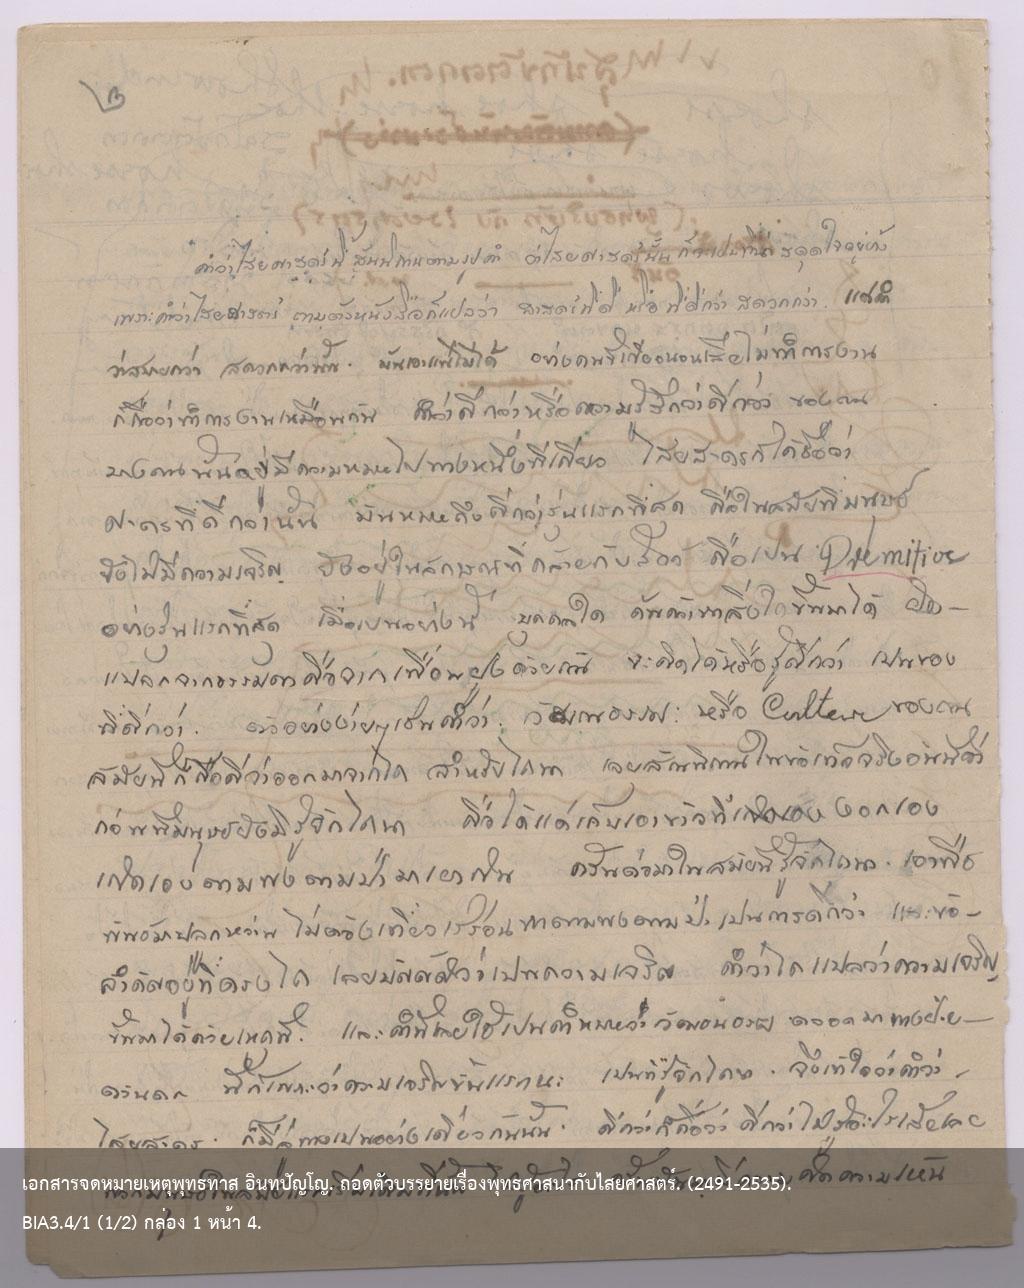 ๒
คำว่าไสยศาสตร์นี้ สันนิษฐานตามรูปคำ ว่าไสยศาสตร์นั้น ก็จะเป็นที่น่าสดุดใจอยู่บ้าง
เพราะคำว่าไสยศาสตร์ ตามตัวหนังสือก็แปลว่า ศาสตร์ที่ดี หรือ ที่ดีกว่า สดวกกว่า. แต่ดี
ว่าสบายกว่า สดวกกว่านั้น. มันเอาแน่ไม่ได้ อย่างคนขี้เกียจนอนเสียไม่ทำการงาน
ก็ถือว่าทำการงานเหมือนกัน คำว่าดีกว่าหรือความรู้สึกว่าดีกว่า ของคน
บางคนนั้นอยู่มีความหมายไปทางหนึ่งทีเดียว ไสยศาสตร์ได้ชื่อว่า
ศาสตร์ที่ดีกว่านั้น มันหมายถึงดีกว่ารุ่นแรกที่สุด คือในสมัยที่มนุษย์
ยังไม่มีความเจริญ ยังอยู่ในลักษณะที่คล้ายกับสัตว์ คือเป็น Primitive
อย่างรุ่นแรกที่สุด เมื่อเป็นอย่างนี้ บุคคลใด ค้นคว้าหาสิ่งใดขึ้นมาได้ ผิด-
แปลกจากธรรมดาคือจากเพื่อนฝูงด้วยกัน จะคิดได้หรือรู้ดีกว่า เป็นของ
ที่ดีกว่า. ตัวอย่างง่ายๆเช่นคำว่า. วัฒนธรรม: หรือ Culture ของคน
สมัยนี้ก็ถือดีว่าออกมาจากไถ สำหรับไถนา เลยสันนิษฐานในข้อเท็จจริงอันนี้ว่า
ก่อนที่มนุษย์ยังมิรู้จักไถนา คือได้แต่เก็บเอาข้าวที่เกิดเอง งอกเอง
เกิดเองตามพงตามป่ามาเอากิน ครั้นต่อมาในสมัยที่รู้จักไถนา. เอาพืช
พันธ์มาปลูกหว่าน ไม่ต้องเที่ยวเร่ร่อนหาตามพงตามป่า เป็นการดีกว่า และข้อ-
สำคัญอยู่ที่ตรงไถ เลยบัญญัติว่าเป็นความเจริญ คำว่าไถแปลว่าความเจริญ
ขึ้นมาได้ด้วยเหตุนี้. และคำนี้เลยใช้เป็นคำหมายว่าวัฒนธรรม ตลอดมาทางฝ่าย-
ตะวันตก นี่ก็เพราะว่าความเจริญขั้นแรกนะ เป็นที่รู้จักไถนา. จึงเข้าใจว่าคำว่า-
ไสยศาสตร์. ก็มีลู่ทางเป็นอย่างเดียวกันนั้น. ดีกว่าก็คือว่า ดีกว่าไม่รู้อะไรเสียเลย
เอกสารจดหมายเหตุพุทธทาส อินทปัญโญ. ถอดตัวบรรยายเรื่องพุทธศาสนากับไสยศาสตร์. (2491-2535).
BIA3.4/1 (1/2) กล่อง 1 หน้า 4.